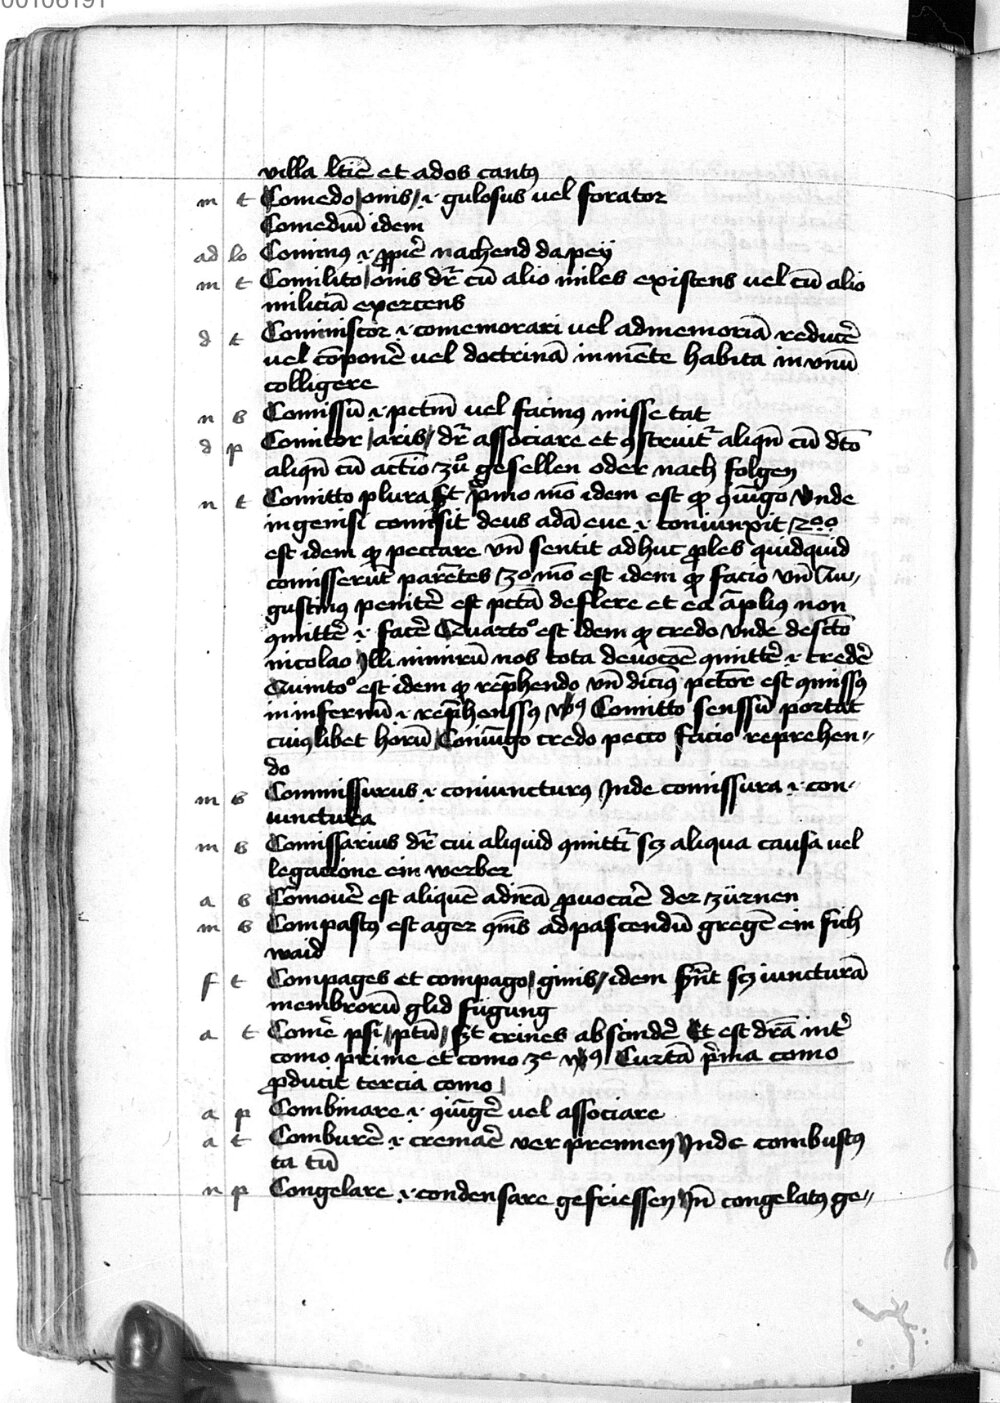 00106191
villa lt̄ie et ados cantꝯ
m t Comedo / onis / .i. gulosus vel forator
Comediū idem
ad lo Cominꝯ .i. ꝓpiē nachend da pey
m t Comilito / onis dr̄ cū alio miles existens vel cū alio
miliciā exercens
d t Cominiscor .i. comemorari vel ad memoriā reducē
vel cōponē vel doctrinā in mēte habita in vnū
colligere
n s Comissū .i. pctm̄ vel facinꝯ misse tat
d p Comitor / aris / dr̄ associare et ꝯstruitr̄ aliqn̄ cū dt̄o
aliqn̄ cū act̄io zů gesellen oder nach folgen
n t Comitto plura st̄ p̄mo mō idem est qͦ ꝯiūgo Vnde
in genisi comisit deus adā eue .i. coniunxit 2ᵒᵒ
est idem qͦ peccare vn̄ sentit adhuc ꝓles quidquid
comisserūt parētes 3ᵒ mō est idem qͦ facio vn̄ Au〃
gustinꝯ penitē est pctā deflere et ea āplius non
ꝯmittē .i. facē Quartoᵒ est idem qͦ credo vnde descto
nicolao Illi nimirū nos tota deuocōe ꝯmittē .i. credē
Quintoᵒ est idem qͦ rep̄hendo vn̄ dicimꝯ pctōr est ꝯmissꝯ
in infernū .i. rep̄henssꝯ vꝰsꝯ Comitto senssū portat
cuiuslibet horū Coniūgo credo pecco facio reprehen〃
do
m s Commissurus .i. coniuncturꝯ Inde comissura .i. con-
iunctura
m s Comissarius dr̄ cui aliquid ꝯmittr̄ scꝫ aliqua causa vel
legacione ein werber
a s Comouē est aliquē ad irā ꝓuocaē der zürnen
m s Compastꝯ est ager ꝯm̄s ad pascendū gregē ein fich
waid
f t Compages et compago / ginis / idem sn̄t scꝫ iuncturā
membrorū glid fügung
a t Comē psi / ptū / st̄ crines abscindē Et est drā int̄
como prime et como 3ᵉ vꝰsꝯ Curtā p̄ma como
ꝓducit tercia como
a p Combinare .i. ꝯiūgē vel associare
a t Comburē .i. cremaē ver prennen Inde combustꝯ
ta tū
n p Congelare .i. condensare gefriessen Jn̄ congelatꝯ ge〃